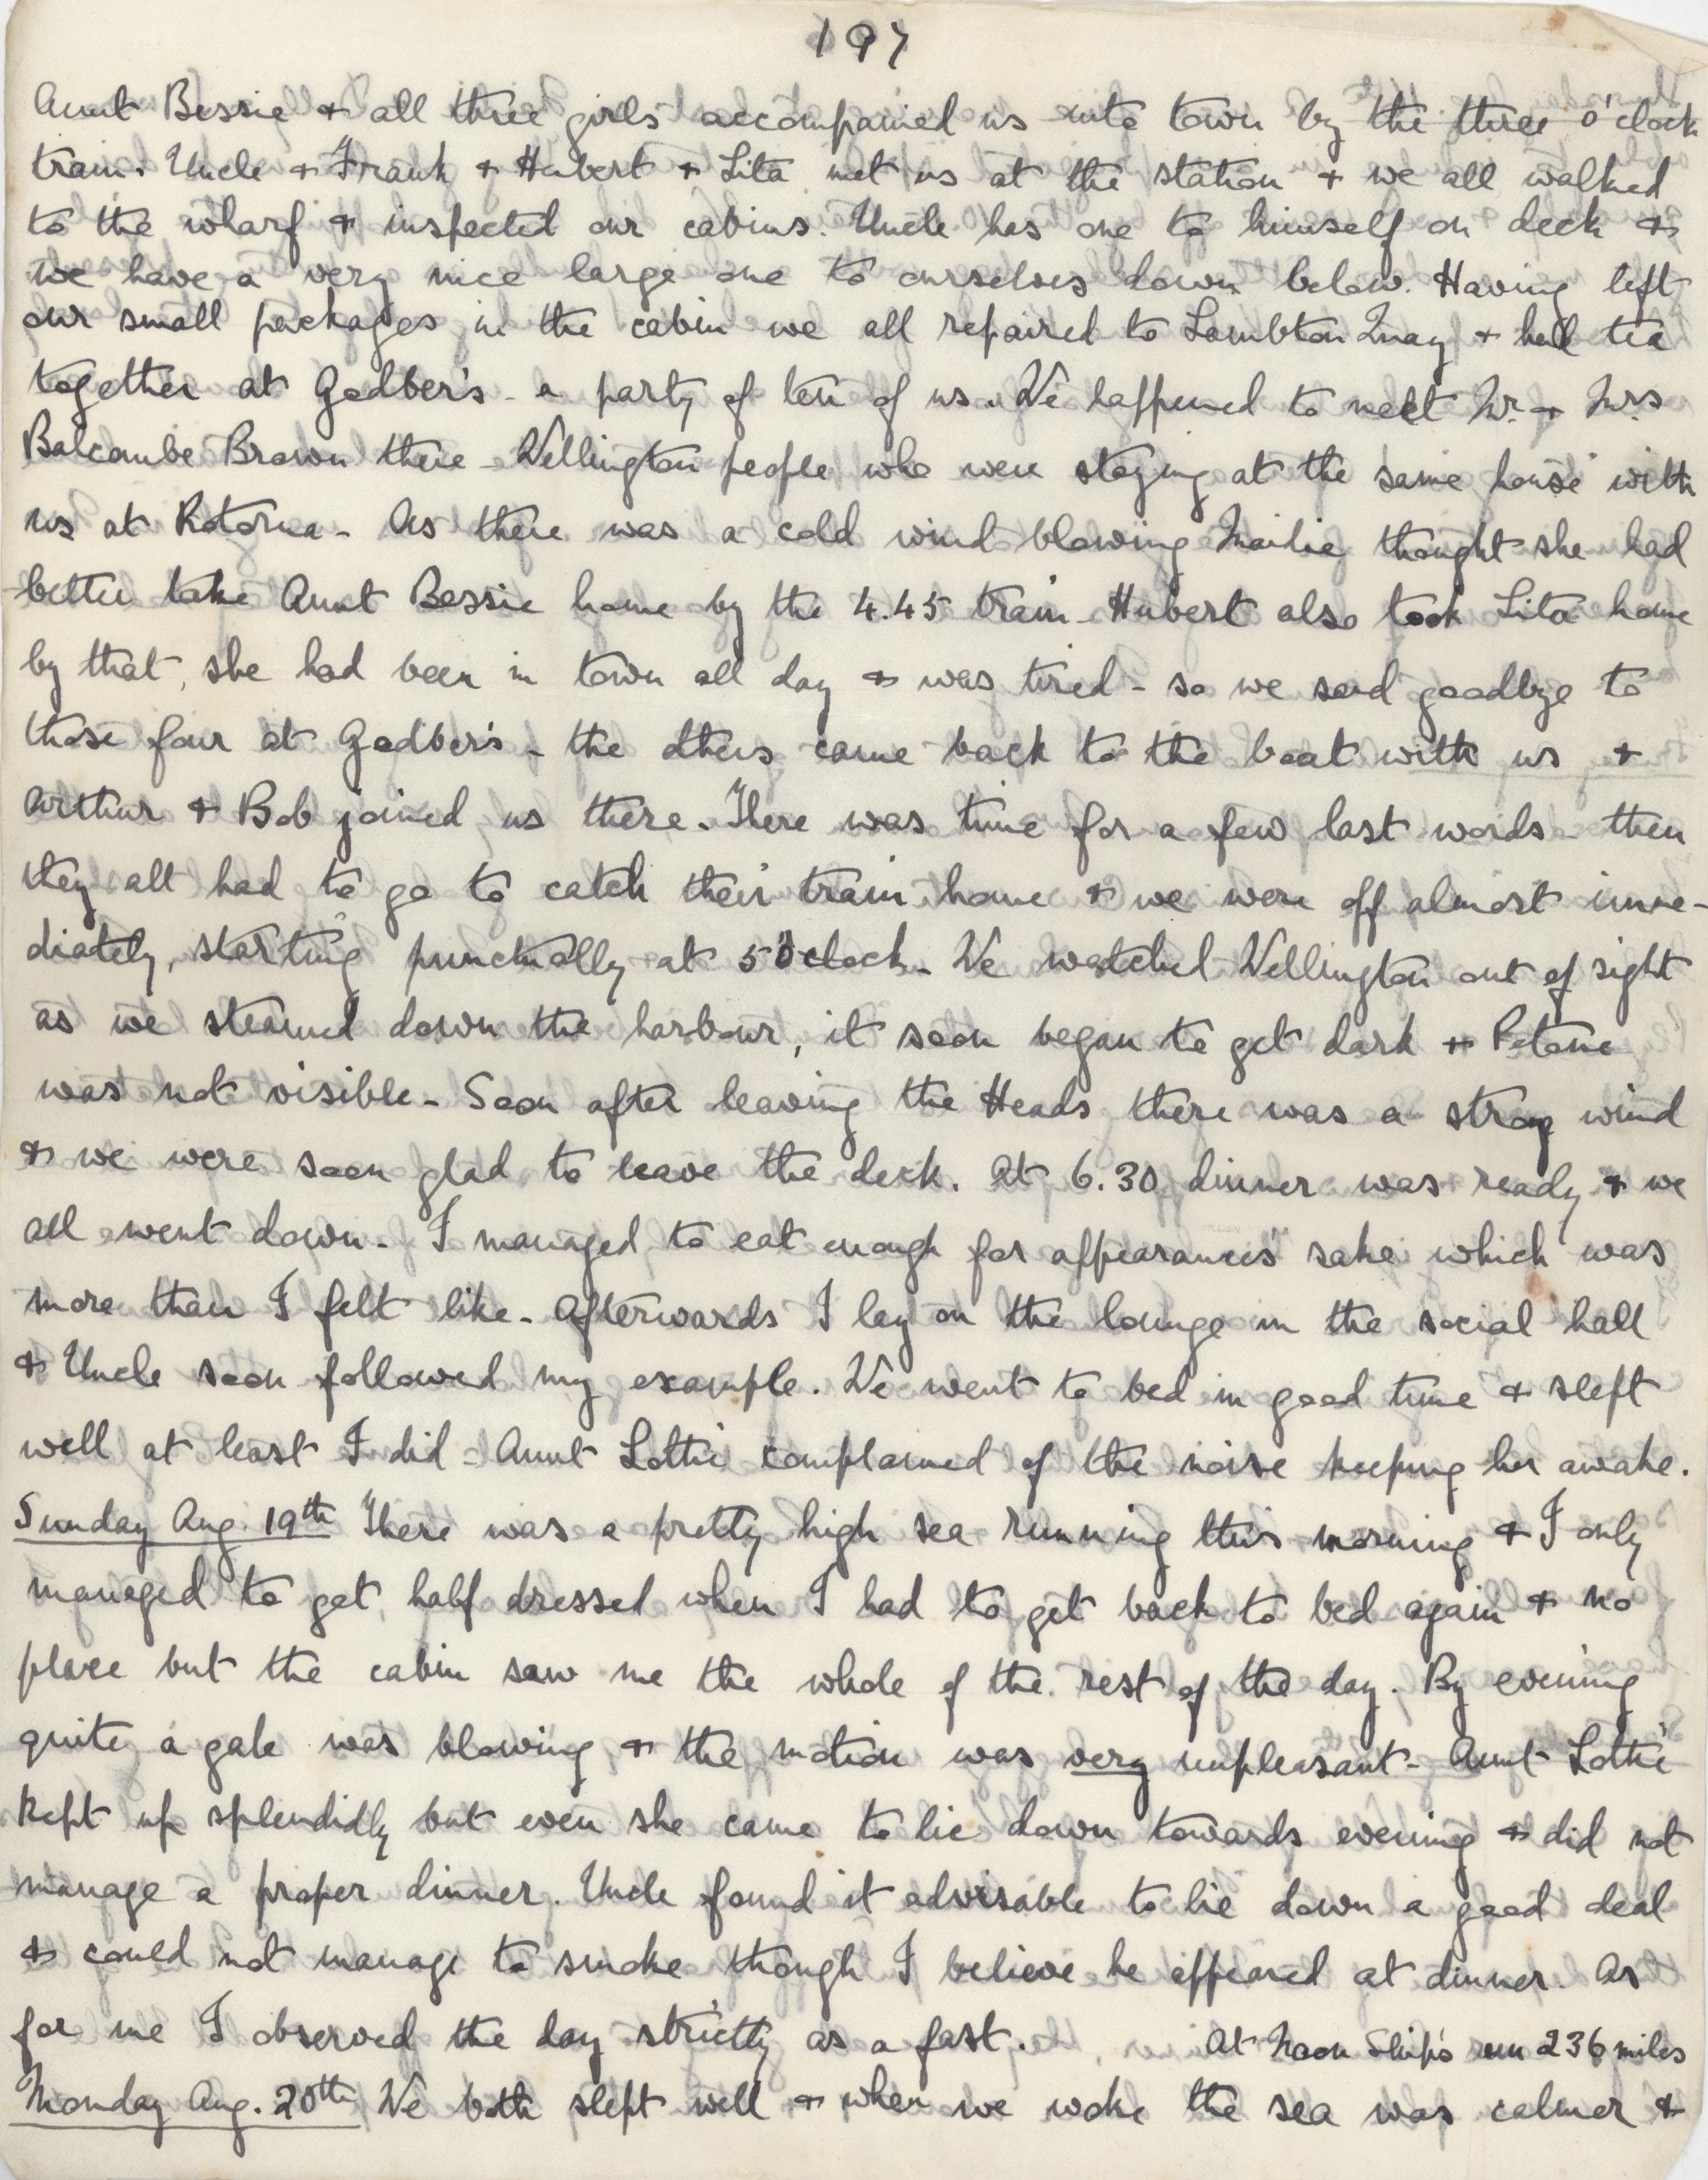 197
Aunt Bessie & all three girls accompanied us into town by the three o'clock
train. Uncle & Frank & Hubert & Lita met us at the station & we all walked
to the wharf & inspected our cabins. Uncle has one to himself on deck &
we have a very nice large one to ourselves down below. Having left
our small packages in the cabin we all repaired to Lambton Quay & had tea
together at Godber's - a party of ten of us. We happened to meet Mr. & Mrs
Balcombe Brown there - Wellington people who were staying at the same house with
us at Rotorua - As there was a cold wind blowing Mailie thought she had
better take Aunt Bessie home by the 4.45 train - Hubert also took Lita home
by that, she had been in town all day & was tired - so we said goodbye to
those four at Godber's - the others came back to the boat with us &
Arthur & Bob joined us there. There was time for a few last words - then
they all had to go to catch their train home & we were off almost imme-
diately, starting punctually at 5 o'clock. We watched Wellington out of sight
as we steamed down the harbour, it soon began to get dark & Petone
was not visible - Soon after leaving the Heads there was a strong wind
& we were soon glad to leave the deck. At 6.30 dinner was ready & we
all went down. I managed to eat enough for appearances' sake which was
more than I felt like. Afterwards I lay on the lounge in the social hall
& Uncle soon followed my example. We went to bed in good time & slept
well at least I did - Aunt Lottie complained of the noise keeping her awake.
Sunday Aug. 19th There was a pretty high sea running this morning & I only
managed to get half dressed when I had to get back to bed again & no
place but the cabin saw me the whole of the rest of the day. By evening
quite a gale was blowing & the motion was very unpleasant - Aunt Lottie
kept up splendidly but even she came to lie down towards evening & did not
manage a proper dinner. Uncle found it advisable to lie down a good deal
& could not manage to smoke though I believe he appeared at dinner. As
for me I observed the day strictly as a fast. At Noon Ship's run 236 miles
Monday Aug. 20th We both slept well & when we woke the sea was calmer &